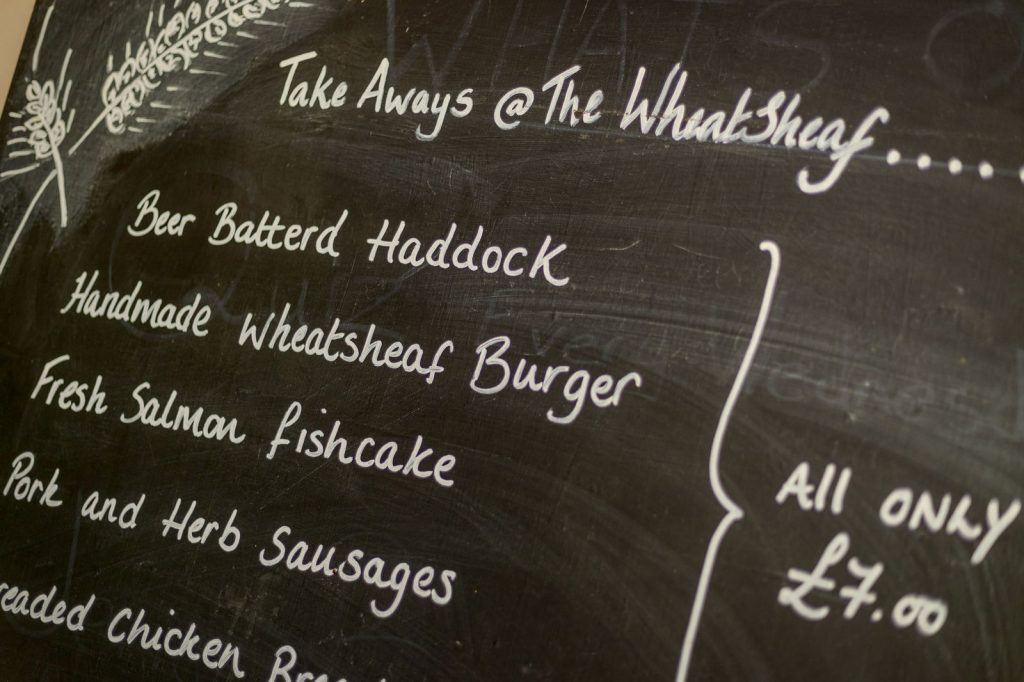 Take Aways @ The WheatSheaf.....
Beer Batterd Haddock
Handmade Wheatsheaf Burger
Fresh Salmon fishcake
Pork and Herb Sausages
Chicken
All ONLY
£7.00